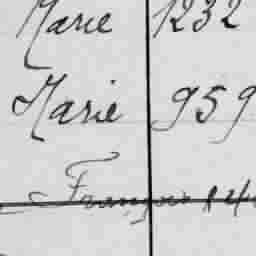 Marie 1232
Marie 959
François 14